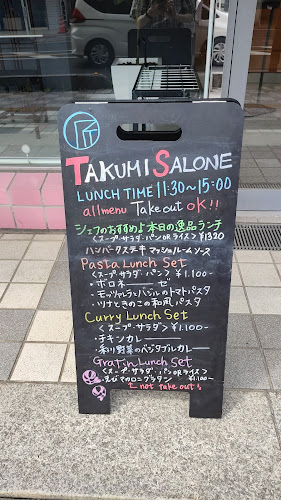 匠
TAKUMI SALONE
LUNCH TIME 11:30~15:00
all menu Take out OK!!
シェフのおすすめ 本日の逸品ランチ
<スープ・サラダ・パン OR ライス> ¥1320
ハンバーグステーキ マッシュルームソース
Pasta Lunch Set
<スープ・サラダ・パン> ¥1.100-
・ボロネーーゼ
・モッツァレラとバジルのトマトパスタ
・ツナときのこの和風パスタ
Curry Lunch Set
<スープ・サラダ> ¥1.100-
・チキンカレー
・彩り野菜のベジタブルカレー
Gratin Lunch Set
<スープ・サラダ・パン OR ライス>
・えびマカロニグラタン ¥1.100-
not take out